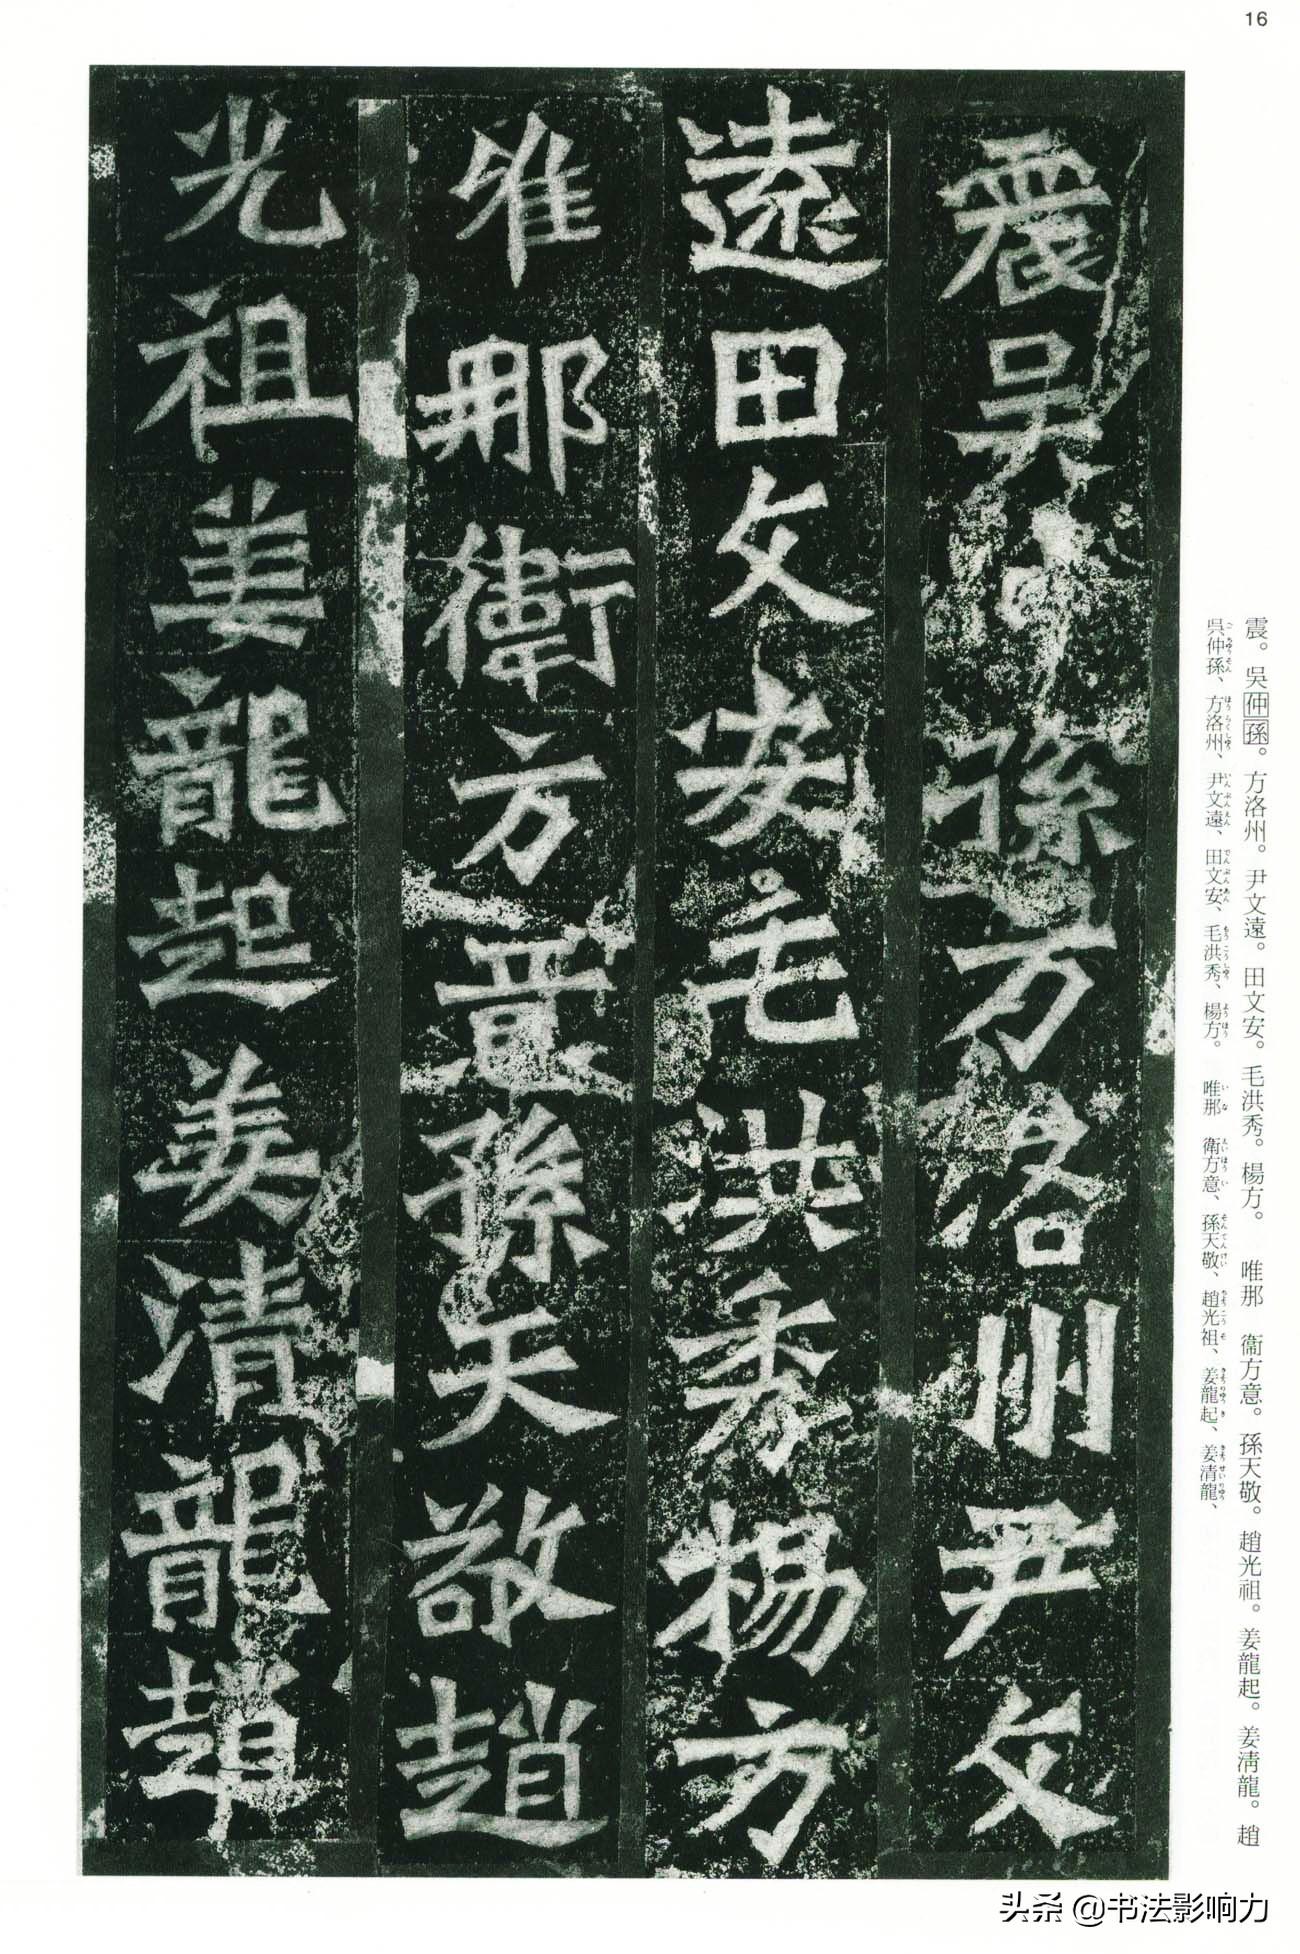 16
震吳仲孫方洛州尹文
遠田文安毛洪秀楊方
唯那衛方意孫天敬趙
光祖姜龍起姜清龍趙
震。吳仲孫。方洛州。尹文遠。田文安。毛洪秀。楊方。 唯那 衞方意。孫天敬。趙光祖。姜龍起。姜淸龍。趙
呉仲孫、方洛州、尹文遠、田文安、毛洪秀、楊方。 唯那 衛方意、孫天敬、趙光祖、姜龍起、姜清龍、
头条 @书法影响力